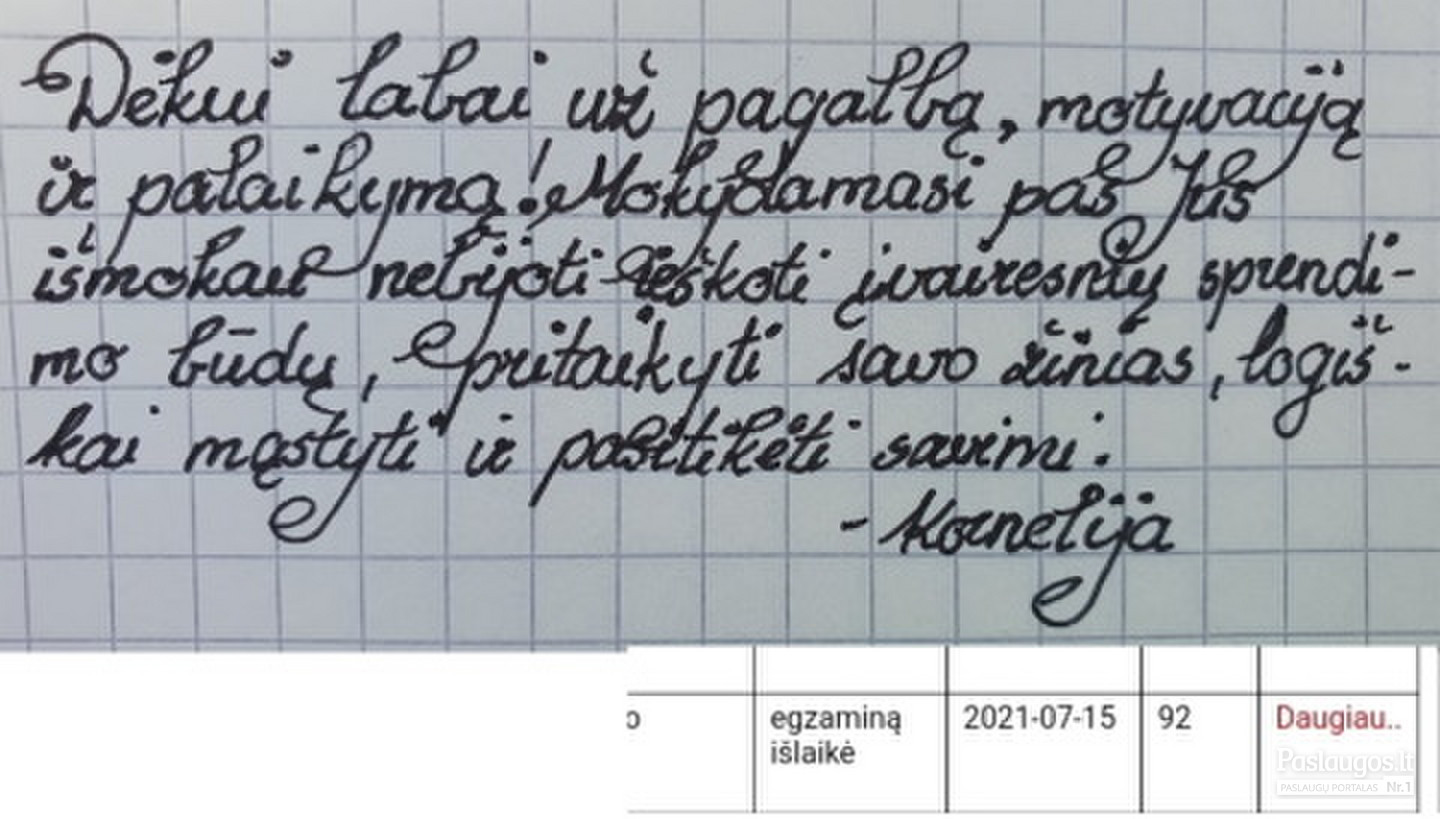 Dėkui labai už pagalbą, motyvaciją
ir palaikymą! Mokydamasi pas Jus
išmokau nebijoti ieškoti įvairesnių sprendi-
mo būdų, pritaikyti savo žinias, logiš-
kai mąstyti ir pasitikėti savimi.
- Kornelija
o egzaminą 2021-07-15 92 Daugiau..
išlaikė
Paslaugos.lt
PASLAUGŲ PORTALAS Nr.1